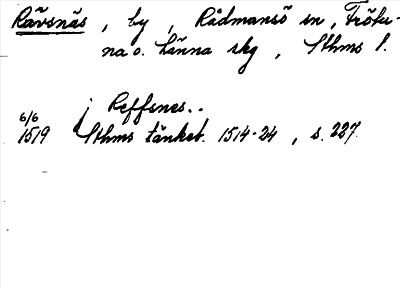 Rävsnäs, by, Rådmansö sn, Frötu-
na o. Länna skg, Sthms l.
j Reffsnes..
6/6
1519 Sthms tänkeb. 1514-24, s. 227.